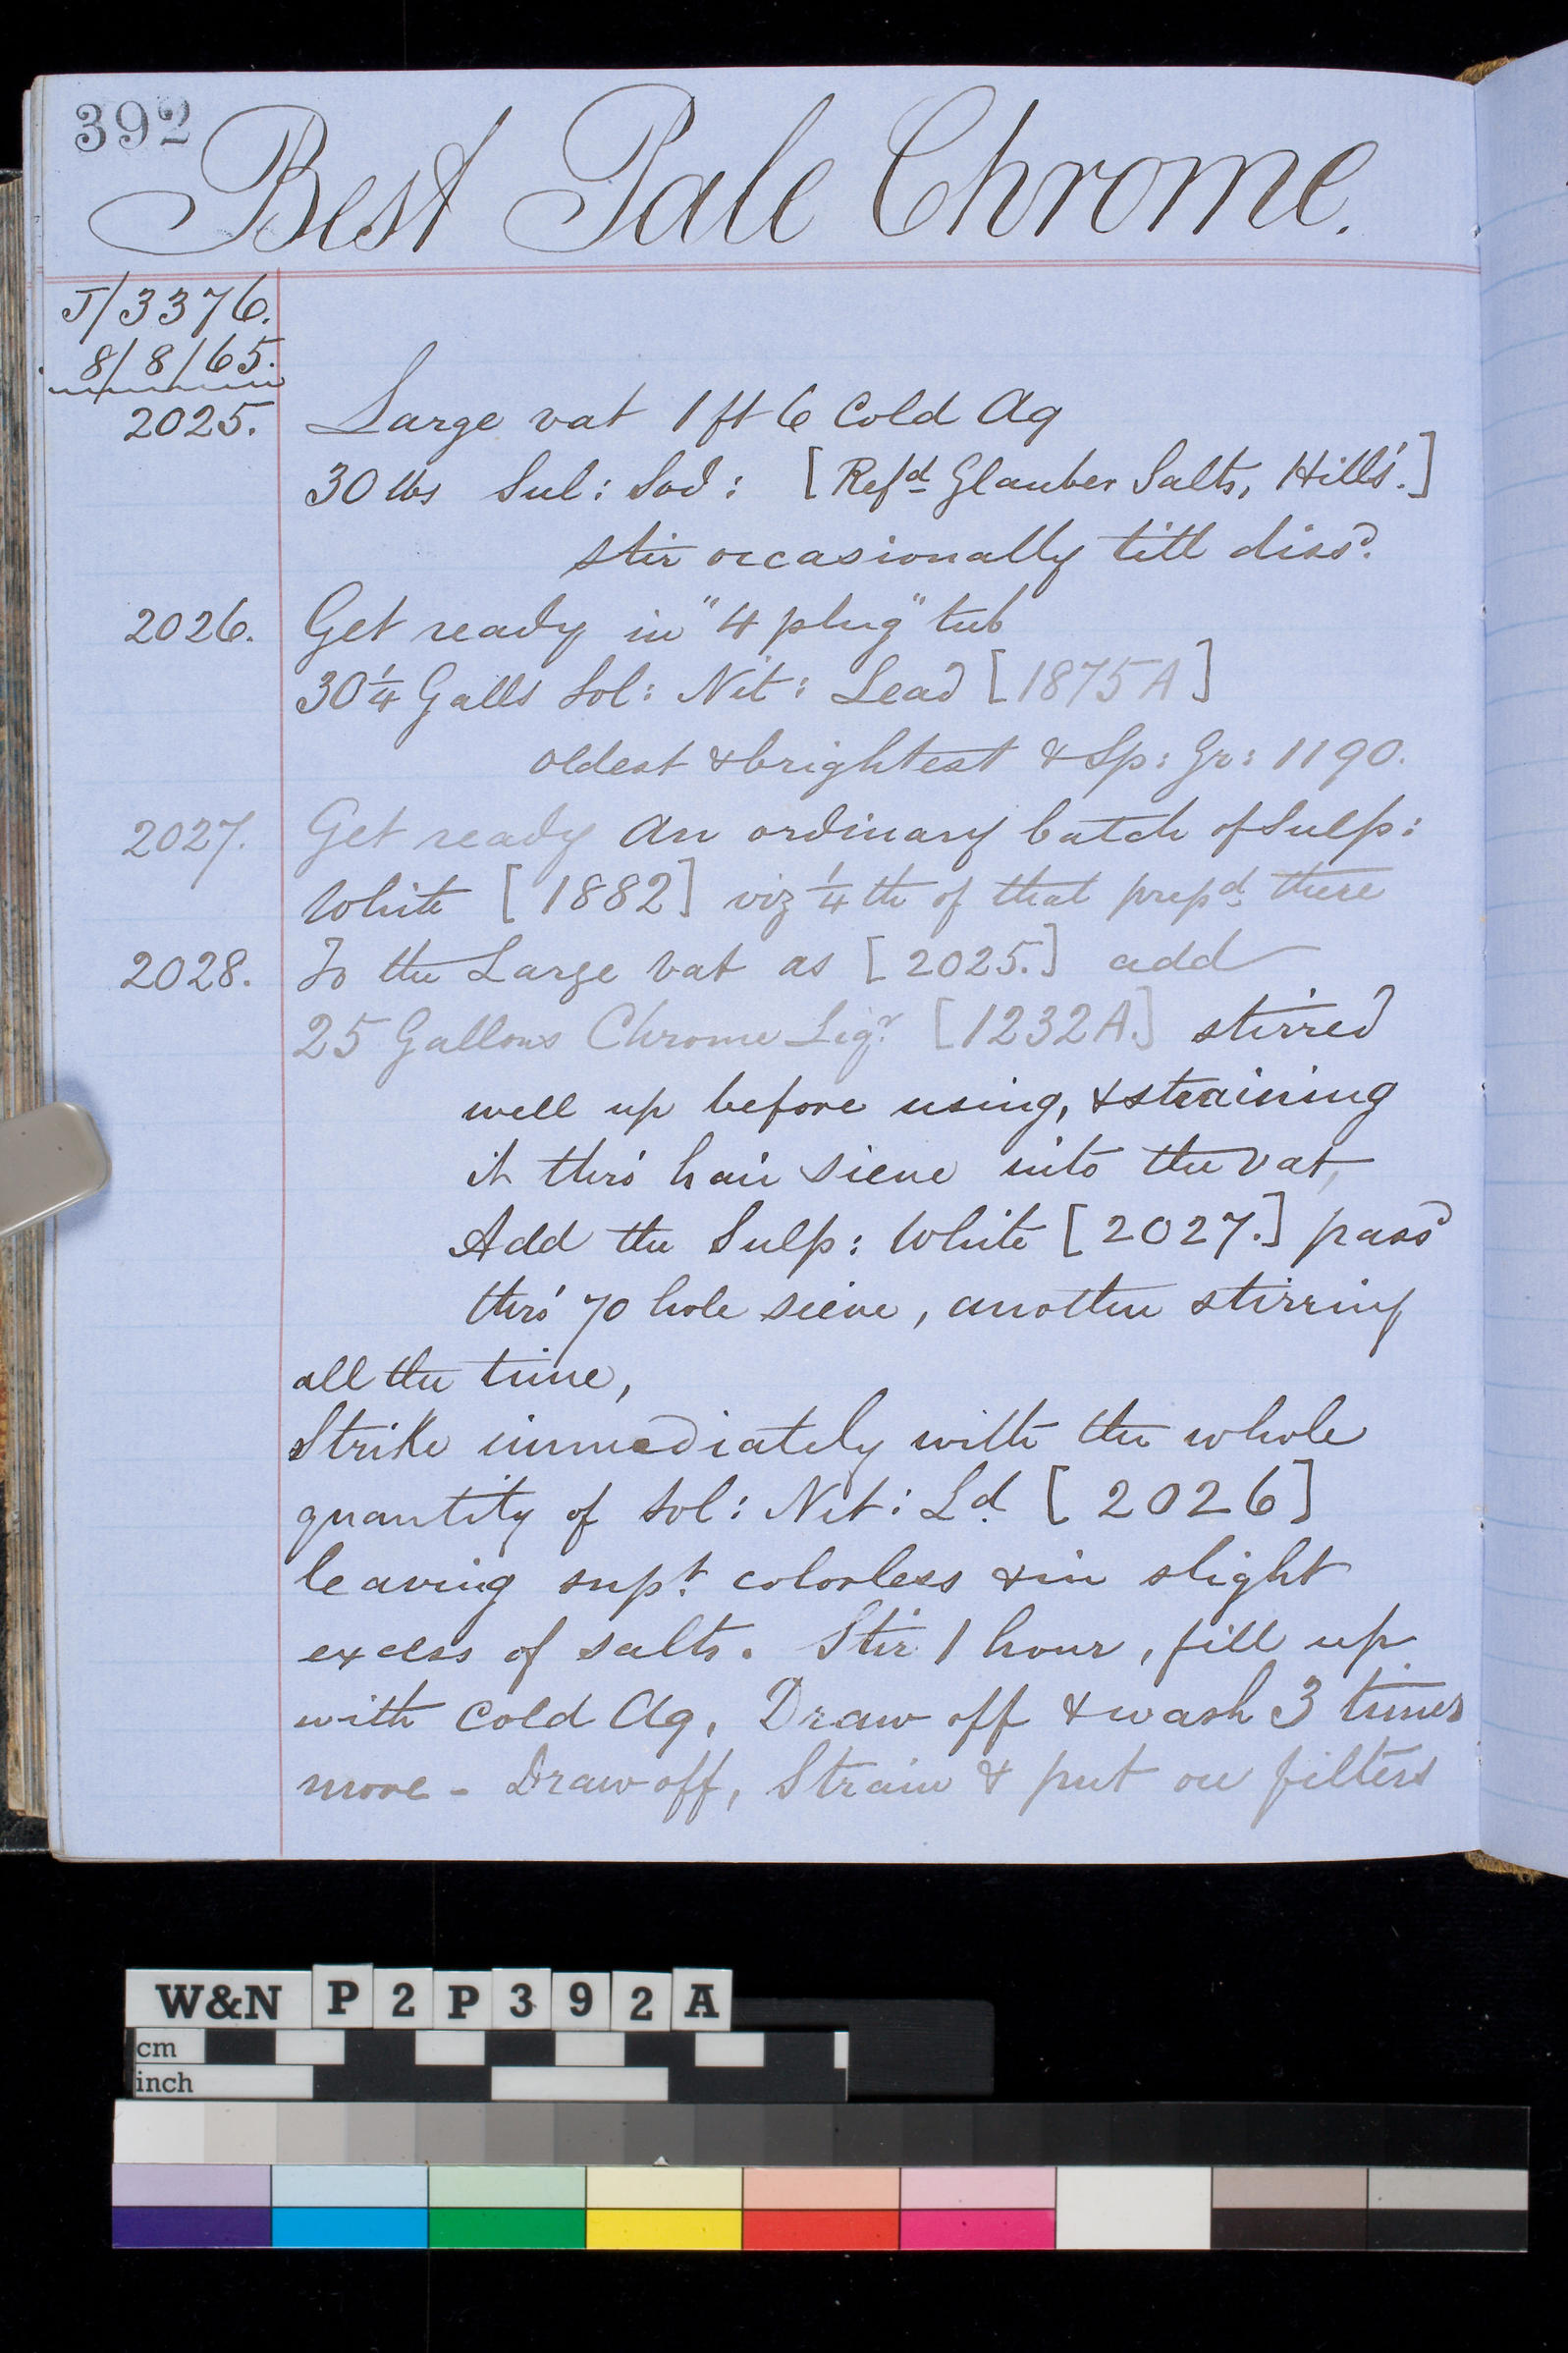 392
Best Pale Chrome.
J/3376.
8/8/65.
2025. Large vat 1 ft 6 Cold Aq
30 lbs Sul: Sod: [Refd Glauber Salts, Hills'.]
stir occasionally till dissd.
2026. Get ready in "4 plug" tub
30¼ Galls Sol: Nit: Lead [1875A]
oldest & brightest & Sp: Gr: 1190.
2027. Get ready An ordinary batch of Sulp:
White [1882] viz ¼th of that prepd. there
2028. To the Large vat as [2025.] add
25 Gallons Chrome Liqr. [1232A.] stirred
well up before using, & straining
it thro' hair sieve into the vat,
Add the Sulp: White [2027.] passd
thro' 70 hole sieve, another stirring
all the time,
Strike immediately with the whole
quantity of Sol: Nit: Ld. [2026]
leaving supt. colorless & in slight
excess of salts. Stir 1 hour, fill up
with Cold Aq, Draw off & wash 3 times
more - Draw off, Strain & put on filters
W&N P2P392A
cm
inch